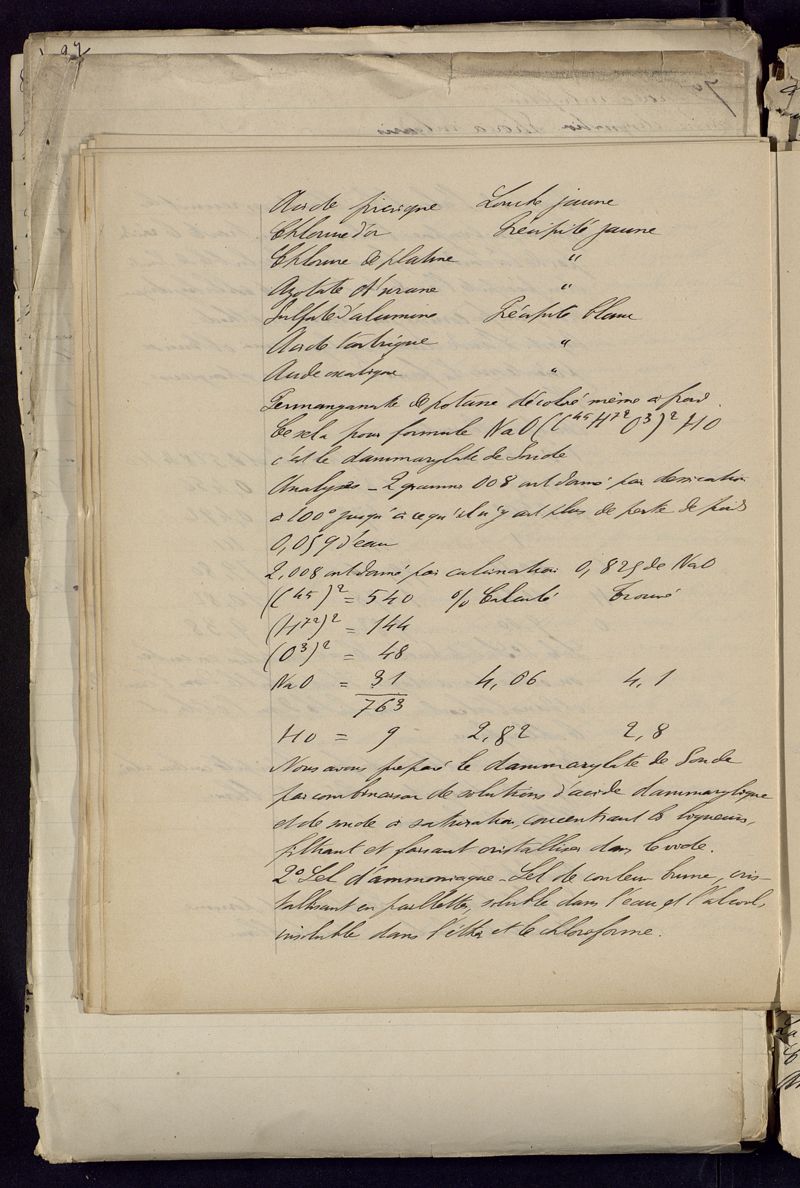 97
Acide picrique Louche jaune
Chlorure d'or Précipité jaune
Chlorure de platine "
Azotate d'urane "
Sulfate d'alumine Précipité blanc
Acide tartrique "
Acide oxalique "
Permanganate de potasse décoloré même à froid.
Ce sel a pour formule NaO (C⁴⁵H⁷²O³)² HO
c'est le dammarylate de soude
Analyse - 2 grammes 008 ont donné par dessication
à 100° jusqu'à ce qu'il n'y ait plus de perte de poids
0,059 d'eau
2,008 ont donné par calcination 0,825 de NaO
(C⁴⁵)² = 540 % Calculé Trouvé
(H⁷²)² = 144
(O³)² = 48
NaO = 31 4,06 4,1
763
HO = 9 2,82 2,8
Nous avons préparé le dammarylate de soude
par combinaison de solutions d'acide dammarylique
et de soude à saturation, concentrant les liqueurs,
filtrant et faisant cristalliser dans le vide.
2° Sel d'ammoniaque - Sel de couleur brune, cris-
tallisant en paillettes, soluble dans l'eau et l'alcool,
insoluble dans l'éther et le chloroforme.